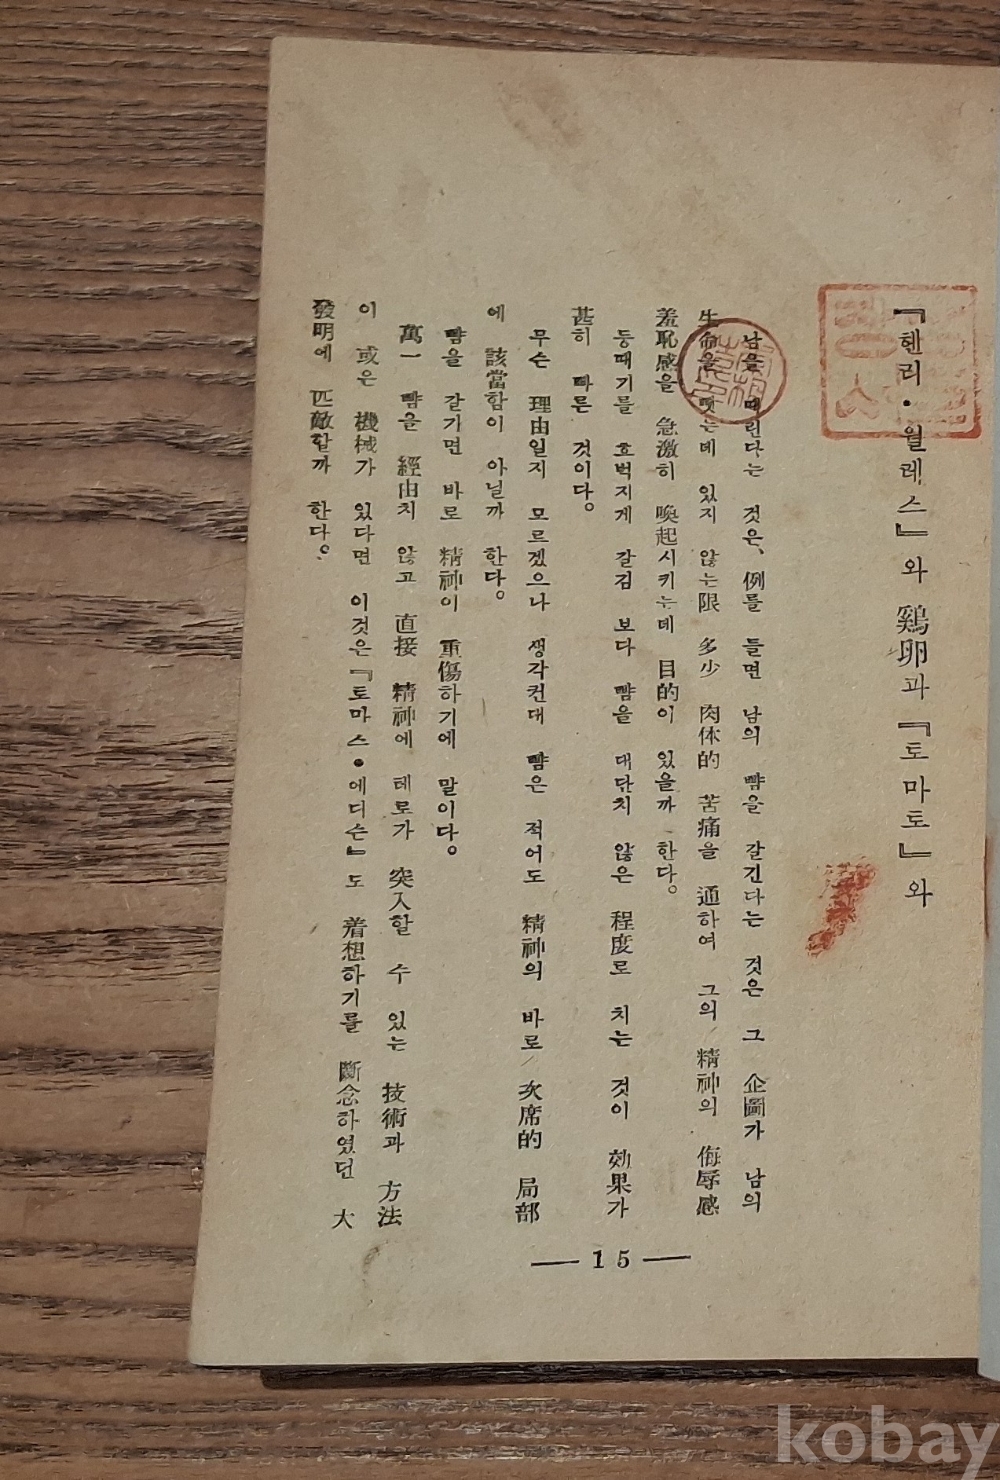 『헨리·월레스』와 鷄卵과『토마토』와
남을 때린다는 것은、例를 들면 남의 뺨을 갈긴다는 것은 그 企圖가 남의
生命을 뺏는데 있지 않는限 多少 肉体的 苦痛을 通하여 그의 精神의 侮辱感
羞恥感을 急激히 喚起시키는데 目的이 있을까 한다。
등때기를 호벅지게 갈김 보다 뺨을 대단치 않은 程度로 치는 것이 効果가
甚히 빠른 것이다。
무슨 理由일지 모르겠으나 생각컨대 뺨은 적어도 精神의 바로 次席的 局部
에 該當함이 아닐까 한다。
뺨을 갈기면 바로 精神이 重傷하기에 말이다。
萬一 뺨을 經由치 않고 直接 精神에 테로가 突入할 수 있는 技術과 方法
이 或은 機械가 있다면 이것은『토마스·에디슨』도 着想하기를 斷念하였던 大
發明에 匹敵할까 한다。
— 15 —
kobay